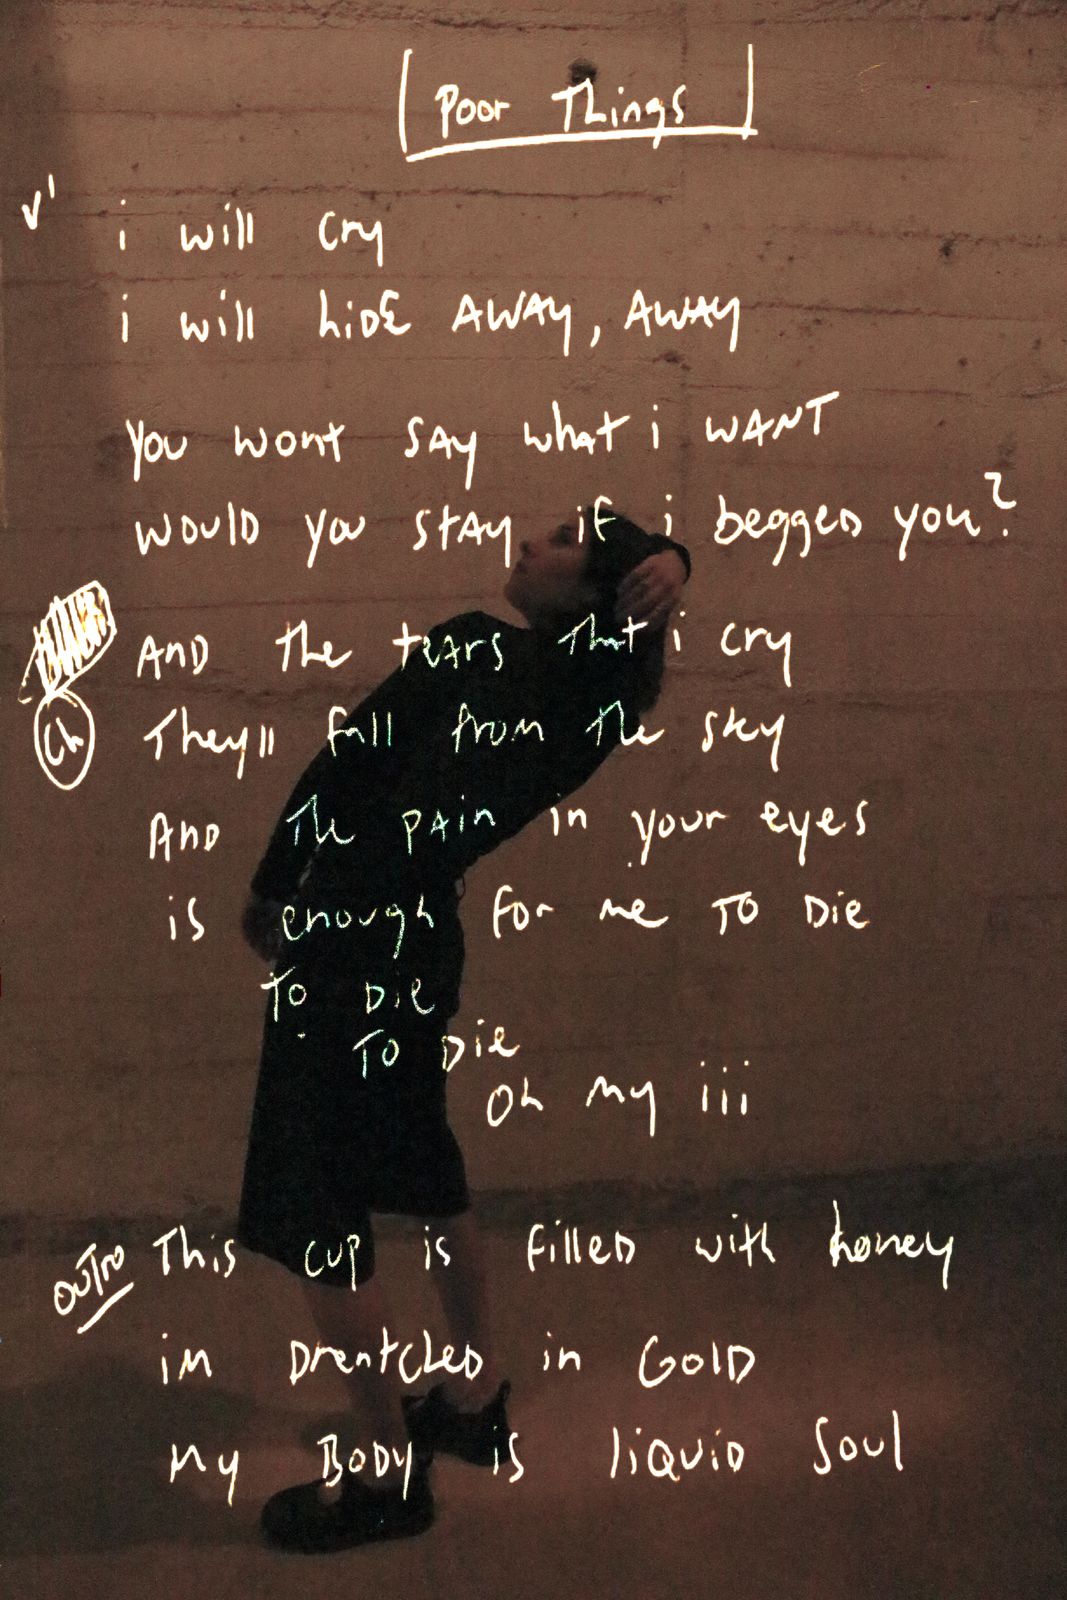 Poor Things
v'
i will cry
i will hiDE AWAY, AWAY
you wont SAY what i WANT
WOULD you stAy if i beggeD you?
AND the teArs that i cry
Ch
They'll fall from the sky
AnD The pAin in your eyes
is enough for me TO Die
TO DiE
TO Die
Oh my iii
OUTro
This cup is filleD with honey
im DrentcheD in GolD
My BODy is liquiD Soul